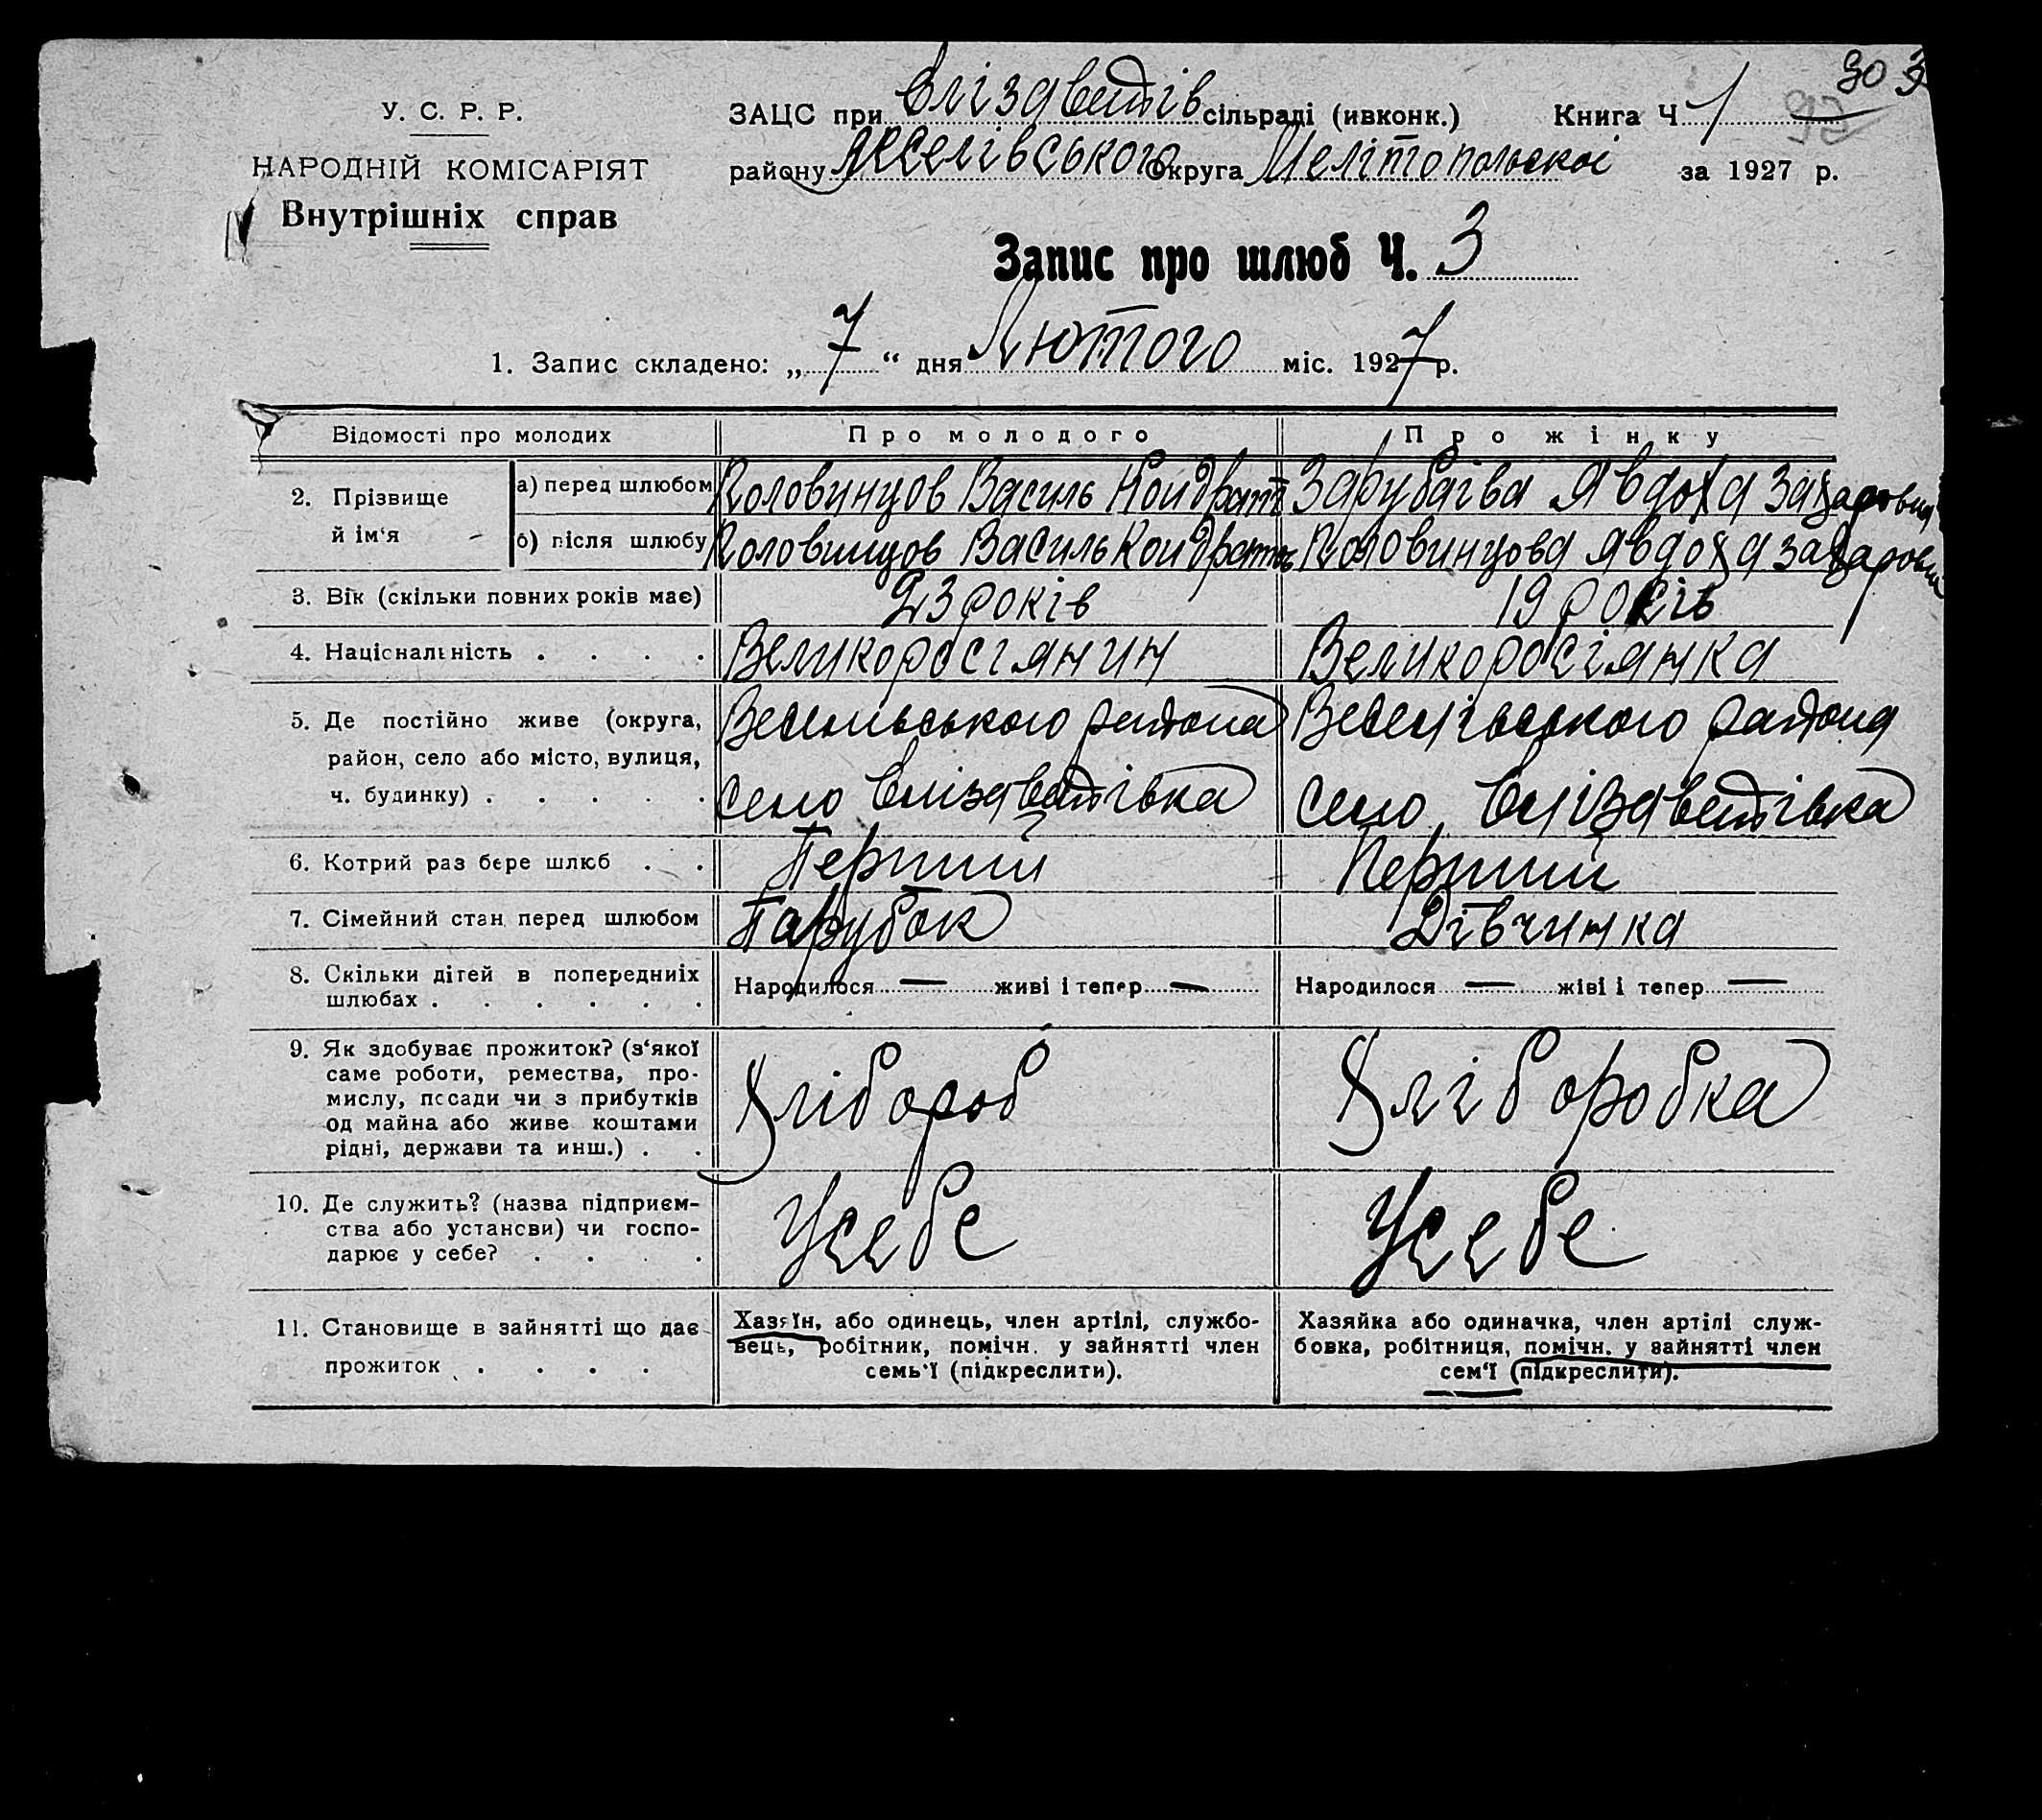 У. С. Р. Р.
НАРОДНІЙ КОМІСАРІЯТ
Внутрішніх справ
ЗАЦС при Єлізаветів сільраді (ивконк.) Книга Ч 1
району округа Мелітопольскоі за 1927 р.
Запис про шлюб Ч. 3
1. Запис складено: „ 7 “ дня Лютого міс. 1927 р.
Відомості про молодих Про молодого Про жінку
2. Прізвище й ім‘я
а) перед шлюбом Коловинцов Василь Кондрат Зарубаіва Явдоха Захаровна
б) після шлюбу Коловинцов Василь Кондрат Коловинцова Явдоха Захаровн
3. Вік (скільки повних років має) 23 років 19 років
4. Національність . . . . Великоросіянин Великоросіянка
5. Де постійно живе (округа, район, село або місто, вулиця, ч. будинку) . . . . .
Весельського района
село Єлізаветівка
Веселівського района
село Єлізаветівка
6. Котрий раз бере шлюб . . Перший Перший
7. Сімейний стан перед шлюбом Парубок Дівчинка
8. Скільки дітей в попередниіх шлюбах . . . . . . Народилося — живі і тепер — Народилося — жіві і тепер —
9. Як здобуває прожиток? (з‘якої
саме роботи, ремества, про-
мислу, посади чи з прибутків
од майна або живе коштами
рідні, держави та инш.) . .
Хлібороб Хліборобка
10. Де служить? (назва підприєм-
ства або установи) чи госпо-
дарює у себе? . . .
Усебе Усебе
11. Становище в зайнятті що дає
прожиток . . . .
Хазяїн, або одинець, член артілі, службо-
вець, робітник, помічн. у зайнятті член
семь‘ї (підкреслити).
Хазяйка або одиначка, член артілі служ-
бовка, робітниця, помічн. у зайнятті член
сем‘ї (підкреслити).